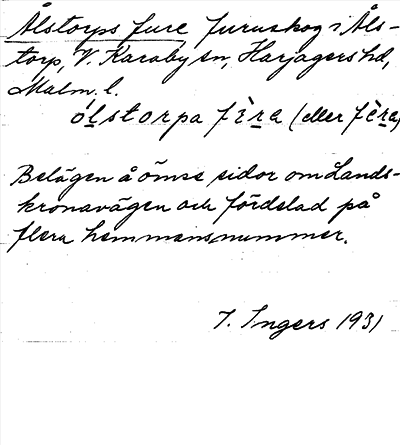 Ålstorps fure furuskog i Åls-
torp, V. Karaby sn, Harjagers hd,
Malm. l.
ólstorpa fὲra (eller fèra)
Belägen å ömse sidor om Lands-
kronavägen och fördelad på
flera hemmansnummer.
I. Ingers 1931